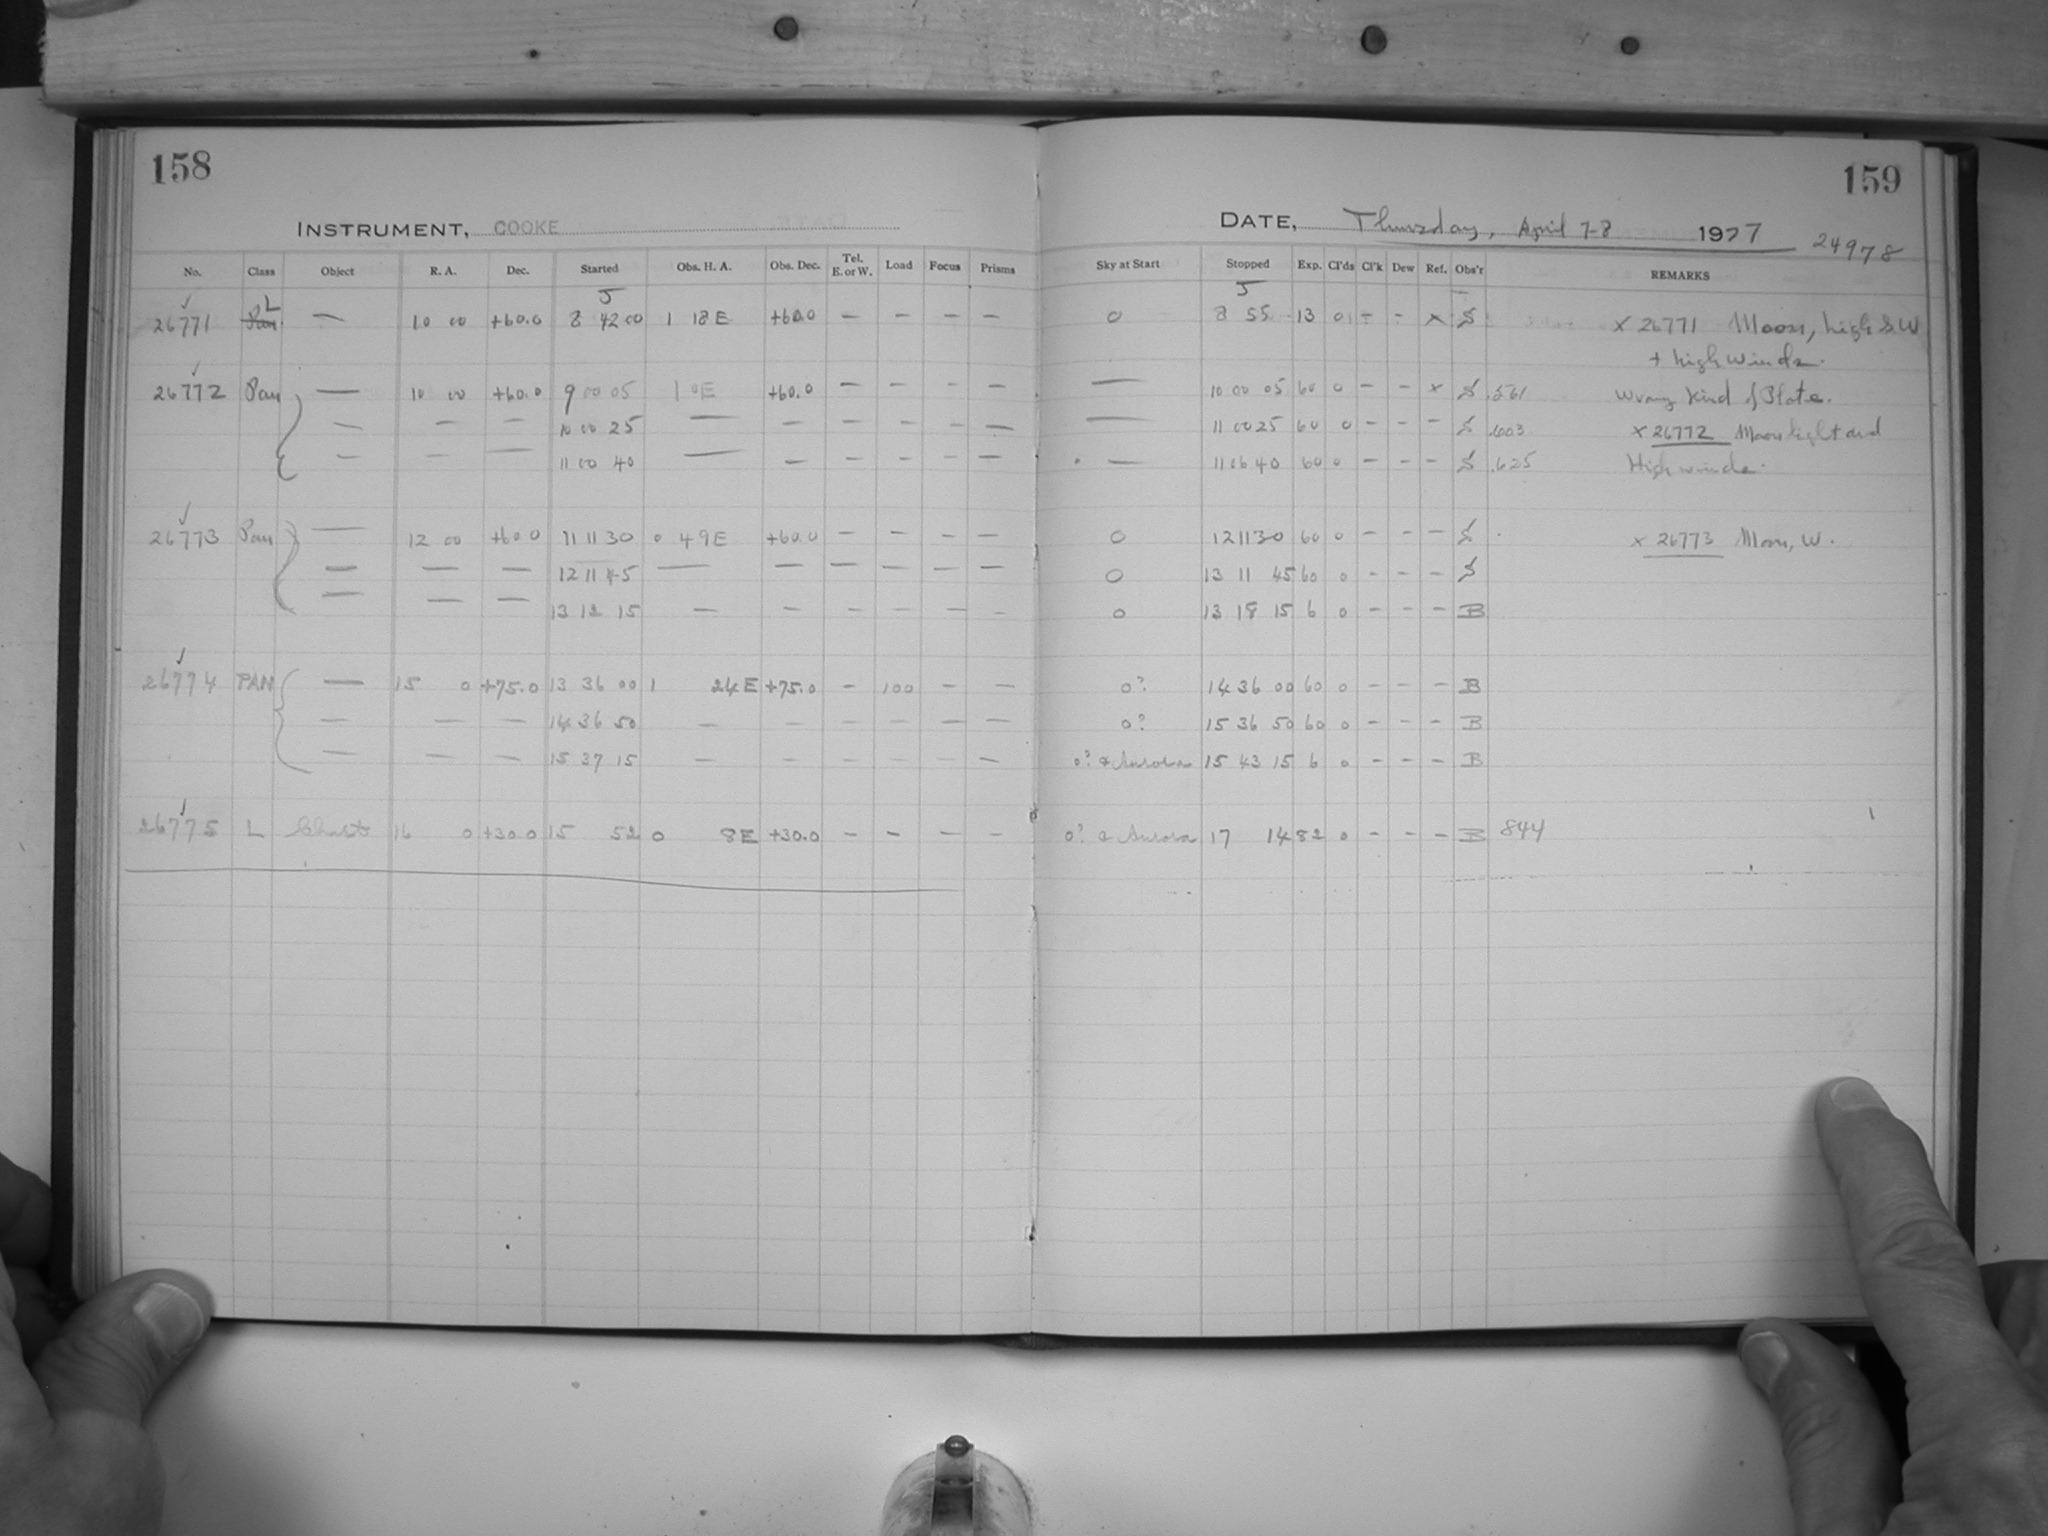 158
INSTRUMENT, COOKE
No. Class Object R. A. Dec. Started Obs. H. A. Obs. Dec. Tel. E. or W. Load Focus Prisms
5
L
26771 Pan — 10 00 +60.0 8 42 00 1 18 E +60.0 — — — —
26772 Pan — 10 00 +60.0 9 00 05 1 0E +60.0 — — — —
— — — 10 00 25 — — — — — —
— — — 11 00 40 — — — — — —
26773 Pan — 12 00 +60 0 11 11 30 0 49E +60.0 — — — —
— — — 12 11 45 — — — — — —
— — — 13 12 15 — — — — — —
26774 PAN — 15 0 +75.0 13 36 00 1 24 E +75.0 — 100 — —
— — — 14 36 50 — — — — — —
— — — 15 37 15 — — — — — —
26775 L Chart 16 0 +30.0 15 52 0 8E +30.0 — — — —
159
DATE, Thursday, April 7-8 1927 24978
Sky at Start Stopped Exp. Cl'ds Cl'k Dew Ref. Obs'r REMARKS
5
0 8 55 13 0 - - x S x 26771 Moon, high S.W
+ high winds.
— 10 00 05 60 0 - - x S .561 Wrong kind of Plate.
— 11 00 25 60 0 - - - S .603 x 26772 Moonlight and
— 11 06 40 60 0 - - - S .625 High winds.
0 12 11 30 60 0 - - - S x 26773 Moon, W.
0 13 11 45 60 0 - - - S
0 13 18 15 6 0 - - - B
0? 14 36 00 60 0 - - - B
0? 15 36 50 60 0 - - - B
0? & Aurora 15 43 15 6 0 - - - B
0? & Aurora 17 14 82 0 - - - B 844